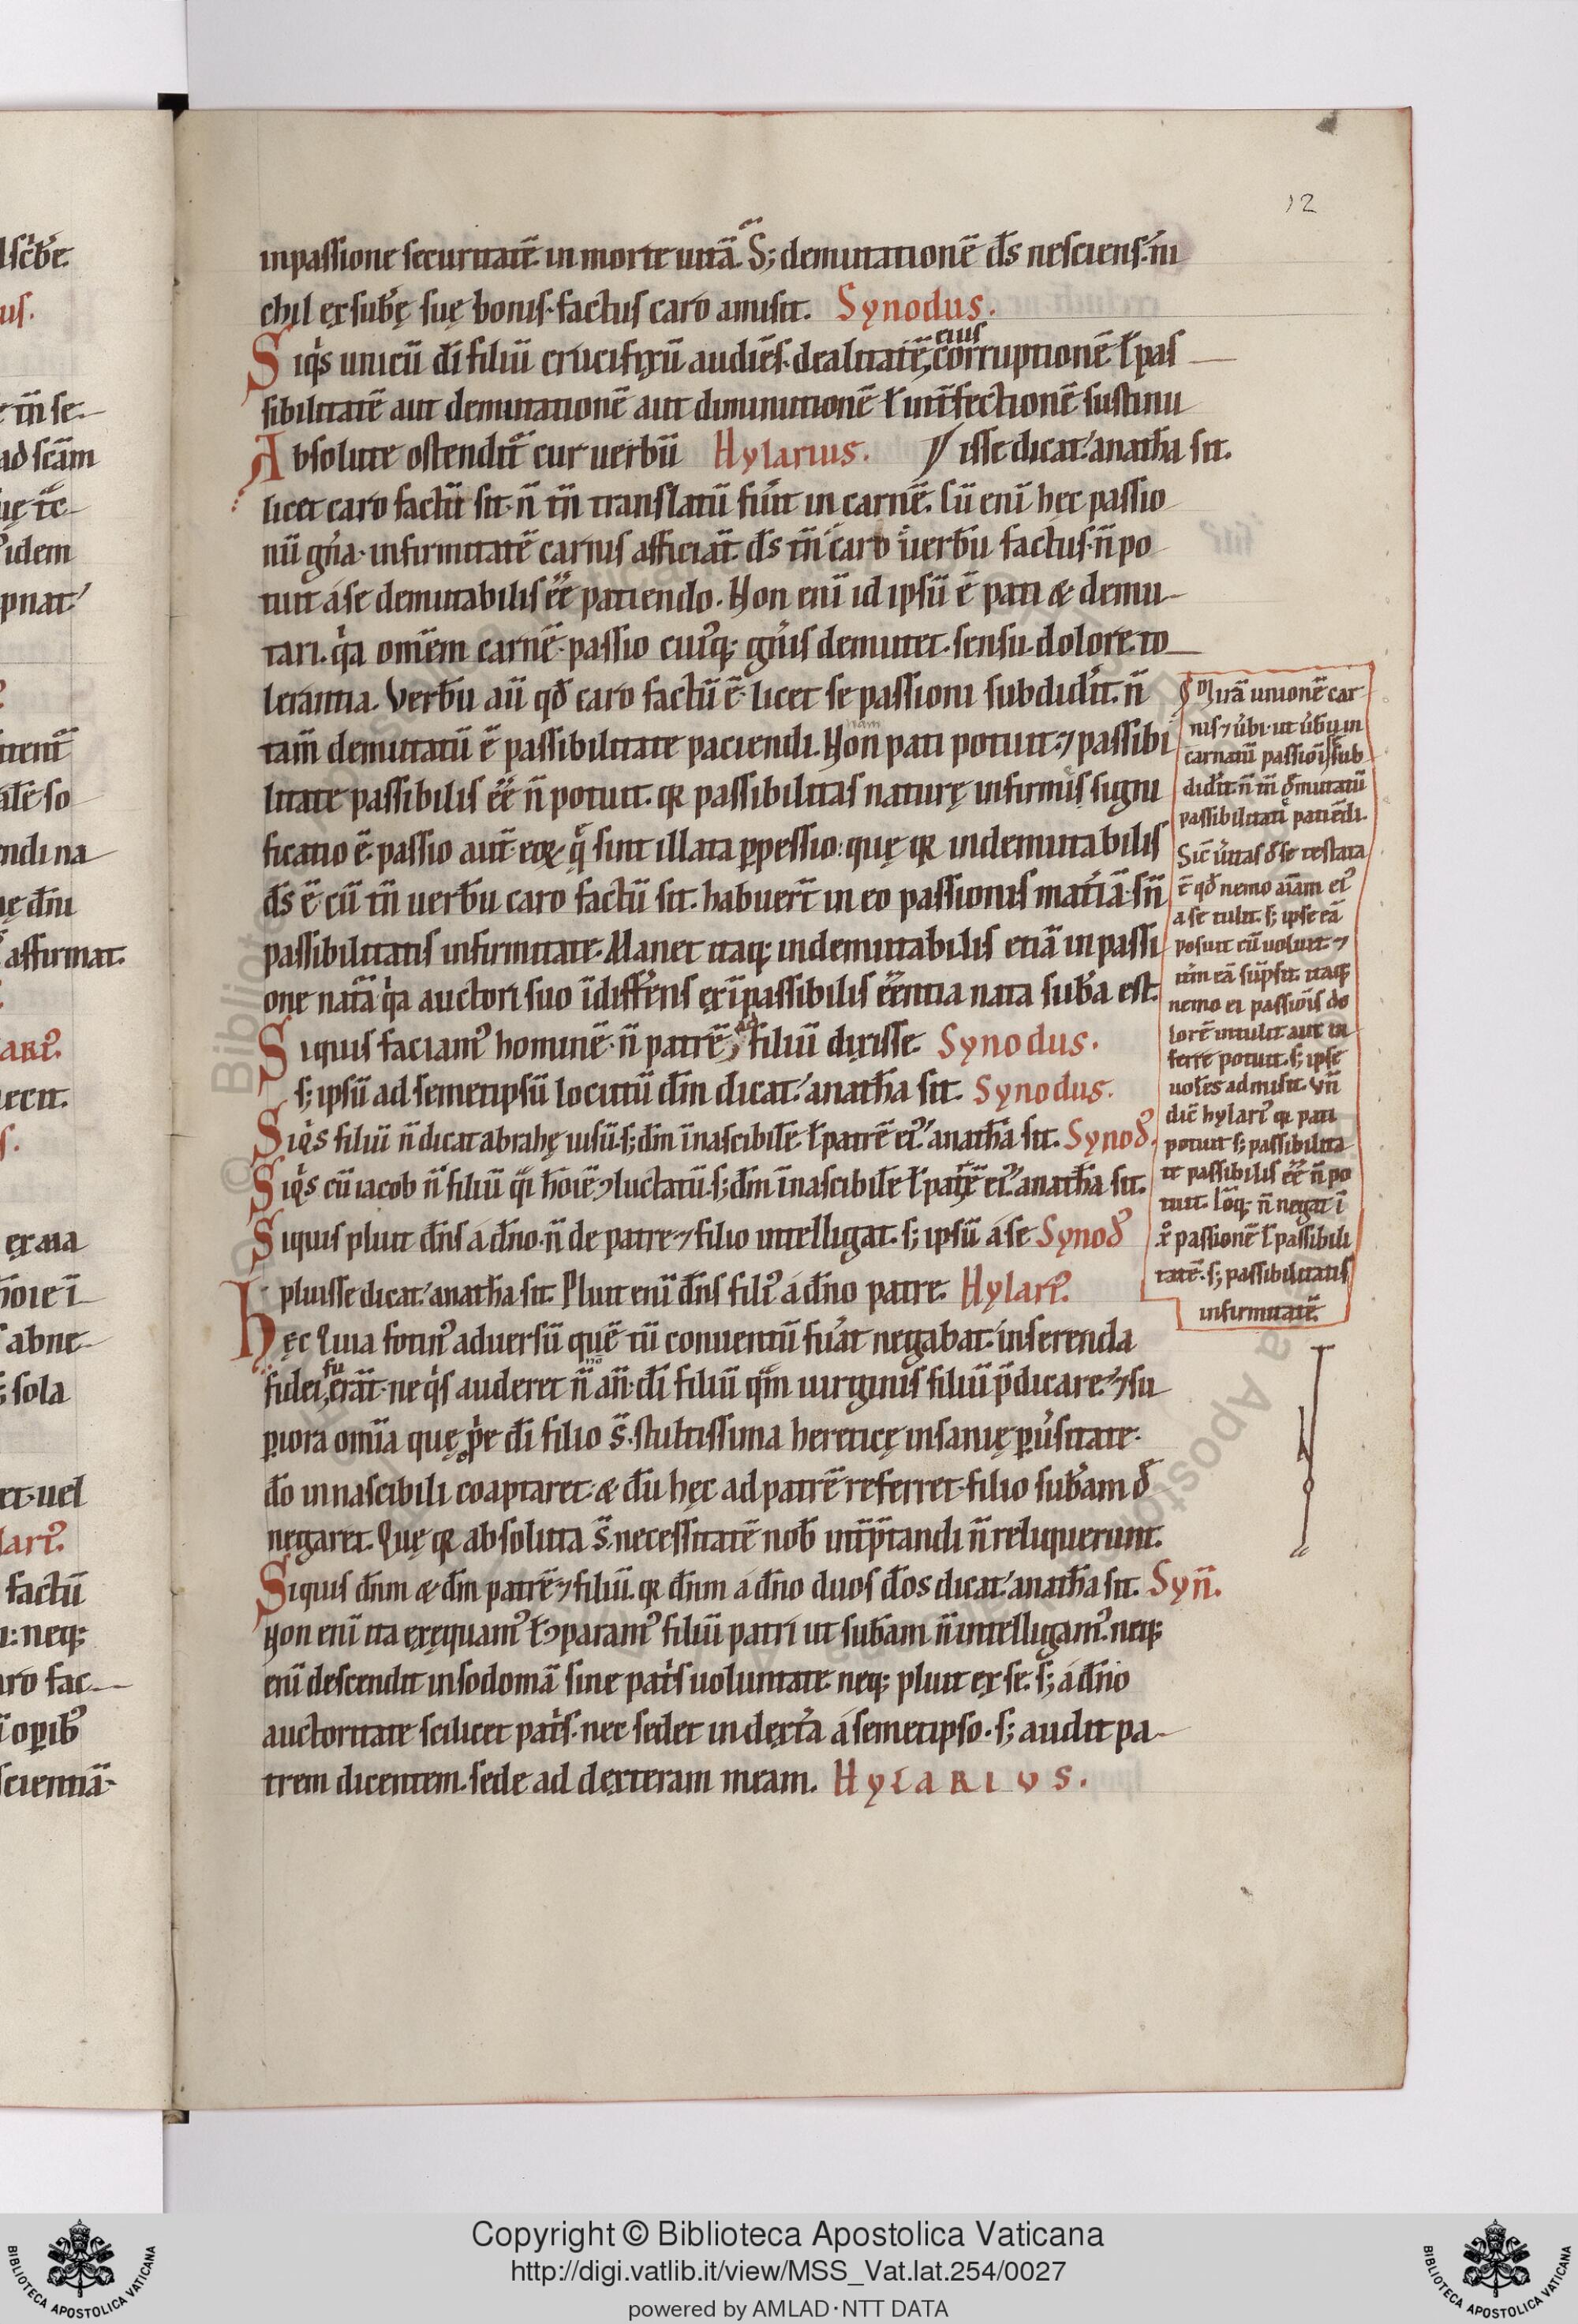 12
inpassione securitatē. in morte uitā. S; demutationē d̄s nesciens. ni
chil ex sub̄ę suę bonis. factus caro amisit. Synodus.
Siq̇s unicū dī filiū crucifixū audiēs. dealitatē, eius corruptionē ł pas
sibilitatē aut demutationē aut diminutionē ł int̄fectionē sustinu
Absolute ostendit̄ cur uerbū Hylarius. isse dicat. anath̄a sit.
licet caro factū sit. n̄ tn̄ translatū fuit in carnē. Cū enī hęc passio
nū gn̄a. infirmitatē carnis afficiat. d̄s tn̄ caro uerb̄u factus. n̄ po
tuit a se demutabilis ēē patiendo. Non enī id ipsū ē pati & demu
tari. q̇a om̄em carnē. passio cuiꝰq; gn̄is demutet. sensu. dolore. to
lerantia. Verb̄u aū qđ caro factū ē. licet se passioni subdiđit. n̄
tam̄ demutatū ē passibilitate paciendi. Non nam pati potuit. ⁊ passibi
litate passibilis ēē n̄ potuit. qr passibilitas naturę infirmis signi
ficatio ē. passio aut̄ eoꝝ q̄ sint illata ꝑpessio. quę qr indemutabilis
d̄s ē. cū tn̄ uerb̄u caro factū sit. habuer̄t in eo passionis mat̄iā. sn̄
passibilitatis infirmitate. Manet itaq; indemutabilis etiā in passi
one nat̄a q̇a auctori suo īdiffer̄ens ex īpassibilis ēēntia nata sub̄a est.
Siquis faciamꝰ hominē. n̄ patrē ad filiū dixisse. Synodus.
s; ipsū ad semetipsū locutū dm̄ dicat. anath̄a sit. Synodus.
Siq̇s filiū n̄ dicat abrahę uisū. s; dm̄ īnascibilē ł patrē eiꝰ. anath̄a sit. Synođ.
Siq̇s cū iacob n̄ filiū q̄i hōiē ꝯluctatū. s; dm̄ īnascibilē ł patrē eiꝰ. anath̄a sit.
Siquis pluit dn̄s a dn̄o. n̄ de patre ⁊ filio intelligat. s; ipsū a se Synođ
pluisse dicat. anath̄a sit. Pluit enī dn̄s filiꝰ a dn̄o patre. Hylariꝰ.
Hęc Quia fotinꝰ aduersū quē tū conuentū fuerat negabat. inserenda
fidei, fu erāt. ne q̇s auderet n̄ an̄ dī filiū qm̄ uirginis filiū p̄dicare. ⁊ su
ꝑiora om̄ia quę ꝓpe dī filio s̄. stultissima heretice insanię ꝑu̇sitate.
d̄o innascibili coaptaret. & dū hęc ad patrē referret. filio sub̄am đ
negaret. Quę qr absoluta s̄. necessitatē nob̄ int̄p̄tandi n̄ reliquerunt.
Siquis dn̄m & dm̄ patrē ⁊ filiū. qr dn̄m a dn̄o duos d̄os dicat. anath̄a sit. Syn̄.
Non enī ita exęquamꝰ ł ꝯparamꝰ filiū patri ut sub̄am n̄ intelligamꝰ. neq;
enī descendit in sodomā sine pat̄s uoluntate. neq; pluit ex se. s; a dn̄o
auctoritate scilicet pat̄s. nec sedet in dext̄a a semetipso. s; audit pa
trem dicentem. sede ad dexteram meam. HYLARIVS.
Mirā unionē car
nis ⁊ u̇bi. ut u̇bū in
carnatū passioi se sub
didit. n̄ tn̄ đmutatū
passibilitati patiēdi.
Sic̄ u̇itas đ se testata
ē qđ nemo aīam eiꝰ
a se tulit. s; ipse eā
posuit cū uoluit. ⁊
it̄m eā sūpsit. itaq;
nemo ei passiois do
lorē intulit aut in
ferre potuit. s; ipse
uolēs admisit. Vn̄
dic̄ hylariꝰ qr pati
potuit s; passibilita
te passibilis ēē n̄ po
tuit. Iōq; n̄ negat ī
xp̊ passionē ł passibili
tatē. s; passibilitatis
infirmitatē.
Copyright © Biblioteca Apostolica Vaticana
http://digi.vatlib.it/view/MSS_Vat.lat.254/0027
powered by AMLAD·NTT DATA
BIBLIOTECA APOSTOLICA VATICANA
BIBLIOTECA APOSTOLICA VATICANA